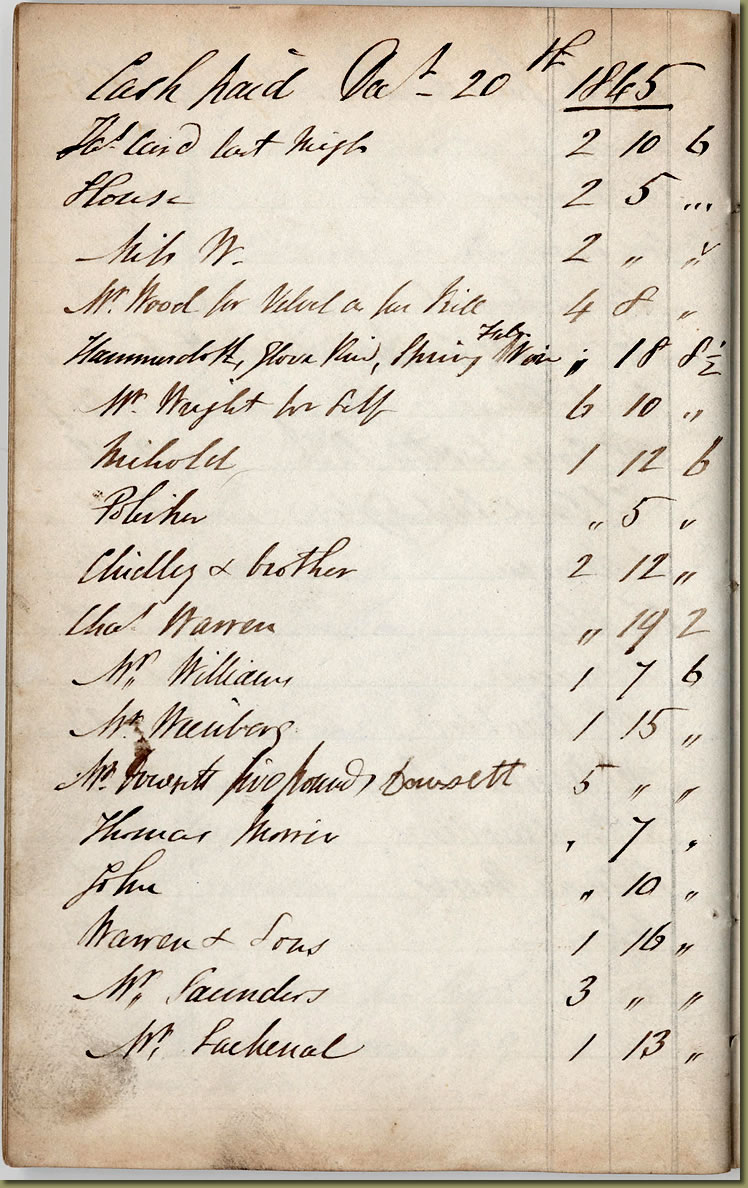 Cash paid Oct 20th 1865
last night 2 10 6
House 2 5 ...
Miss W. 2 „ „
Mr. Wood for Velvet as per Bill 4 8 „
Hammercloth, Glove Kid, Spring „ 18 8½
Mr. Wright for Self 6 10 „
1 12 6
Polisher „ 5 „
Chidley & brother 2 12 „
Chas. Warren „ 19 2
Mr. Williams 1 7 6
Mr. 1 15 „
Mr. Dowsett five pounds Dowsett 5 „ „
Thomas Morris „ 7 „
John „ 10 „
Warren & Sons 1 16 „
Mr. Saunders 3 „ „
Mr. Lachenal 1 13 „